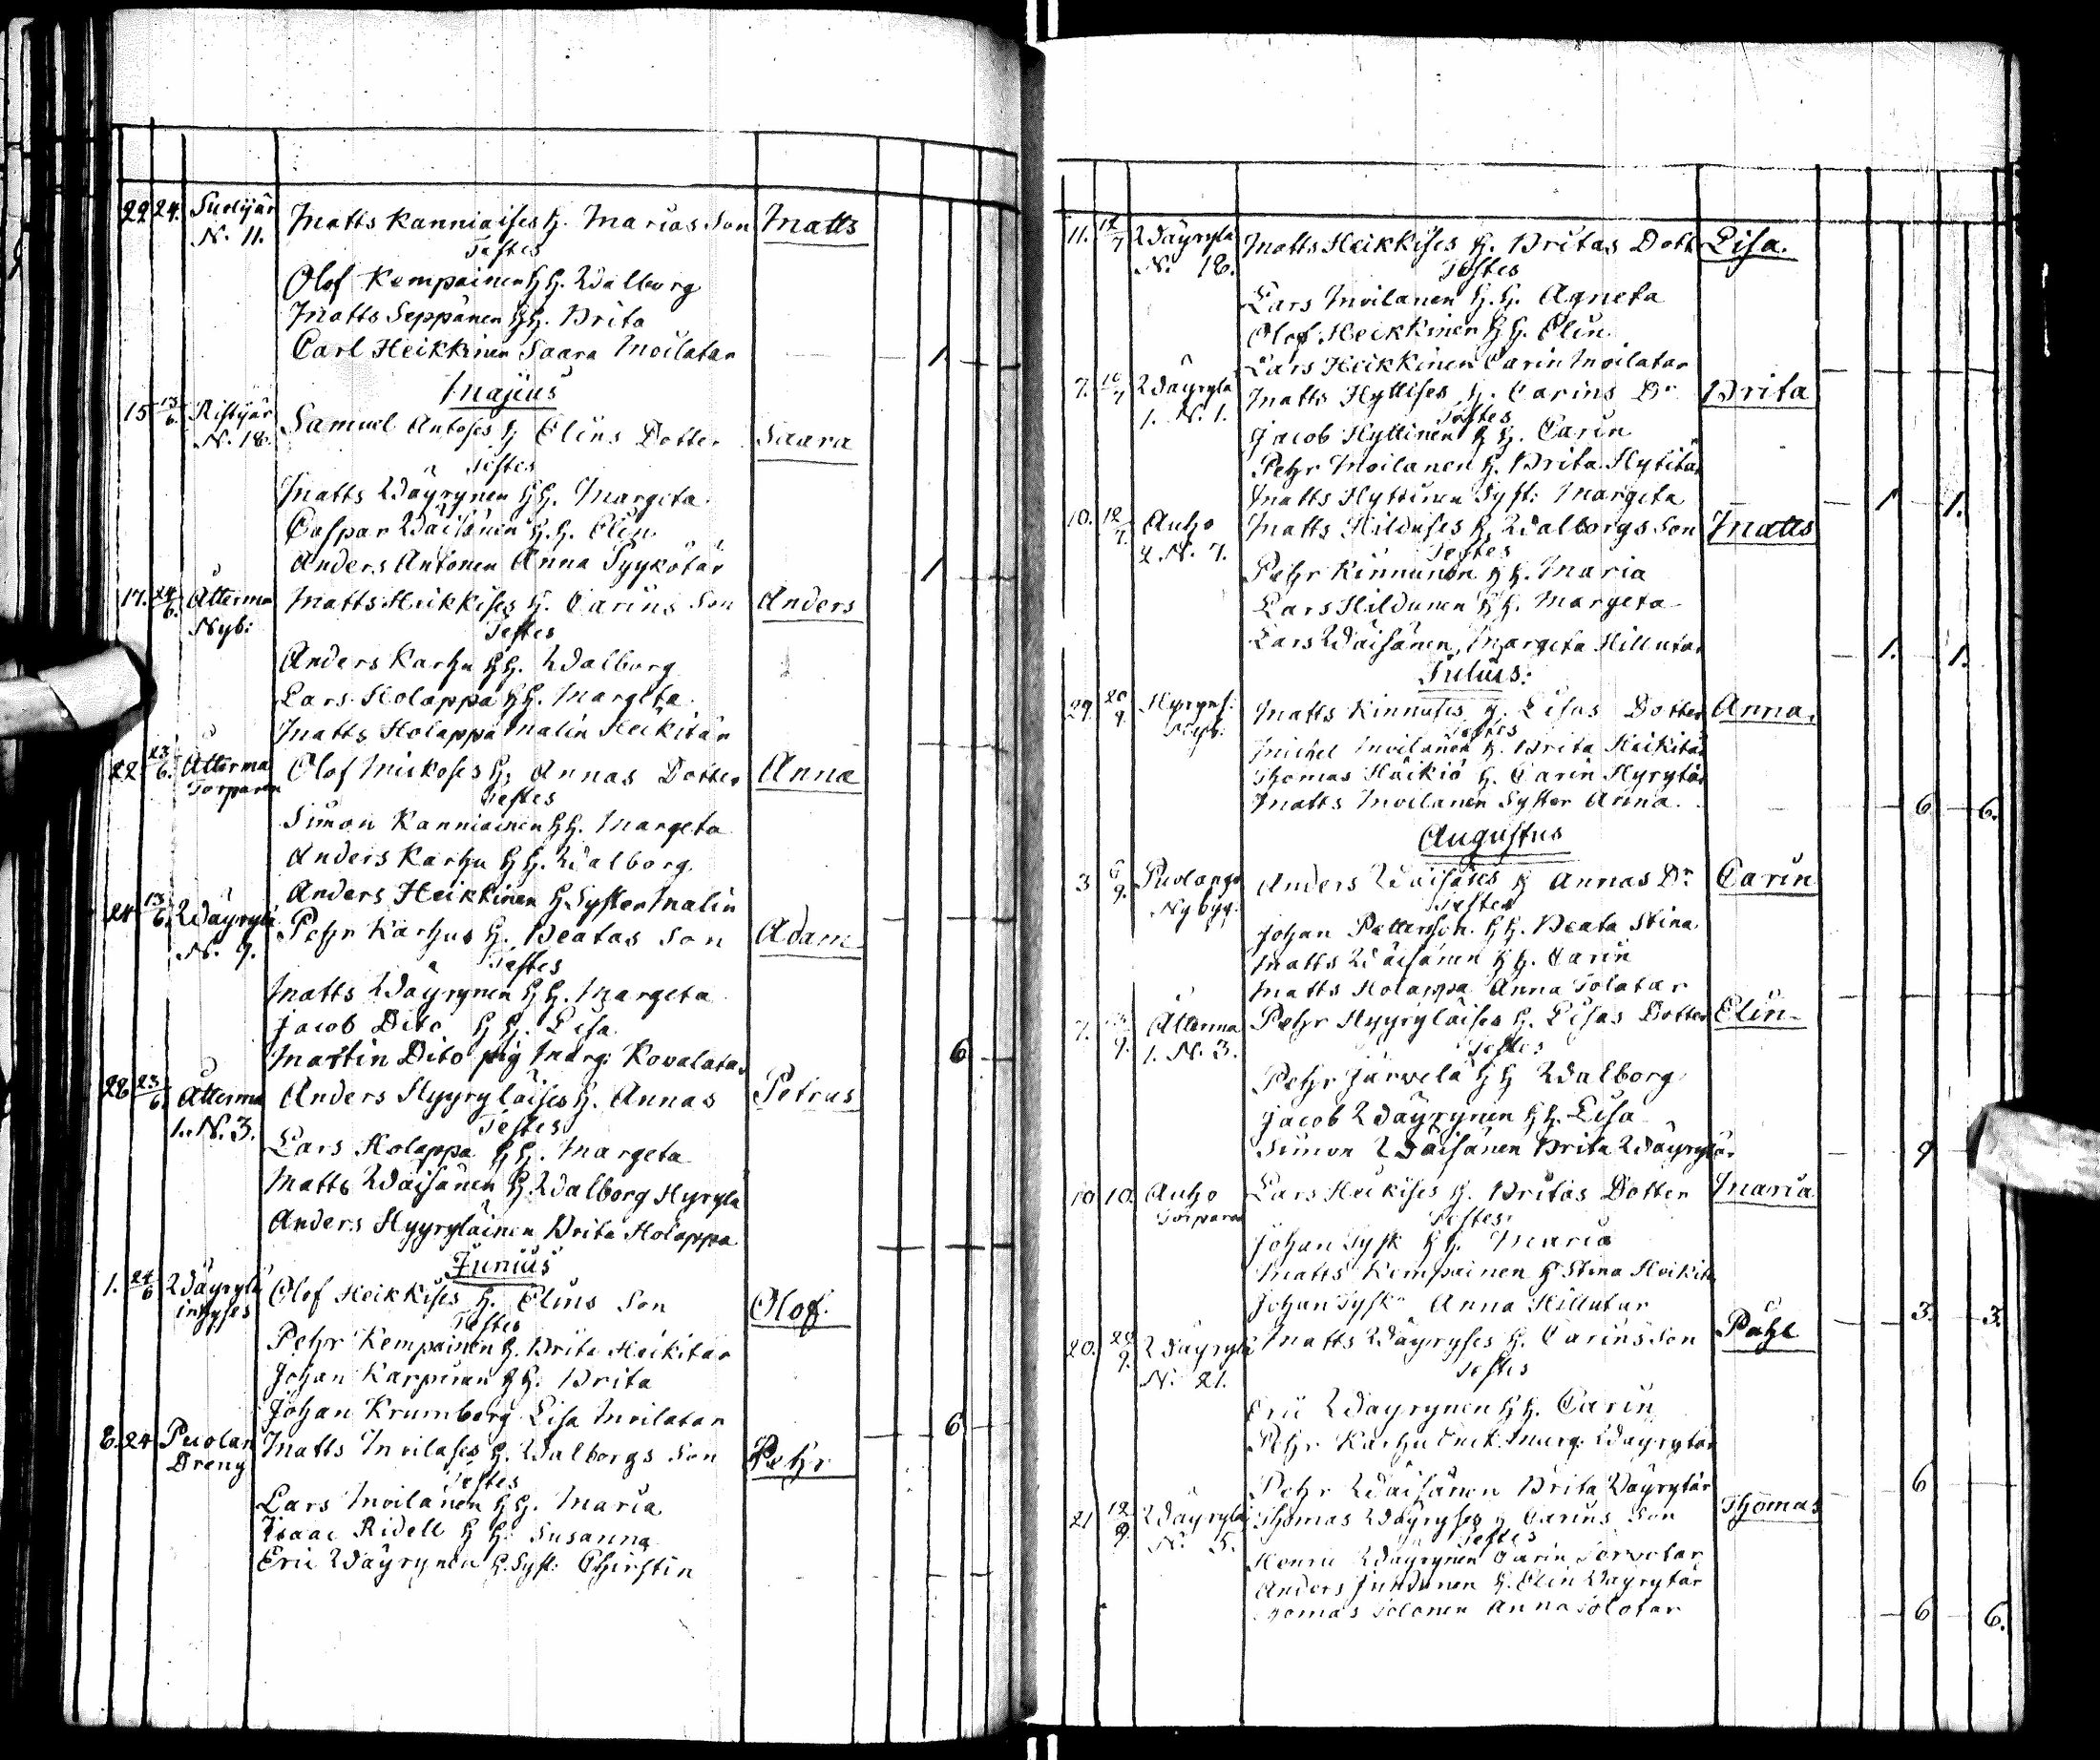 22 24. Suolijär Matts Kanniaises H. Marias Son Matts
N. 11.
Testes
Olof Kempainen H H. Walborg
Matts Seppänen H H. Brita
Carl Heikkinen Saara Moilatar 1
Majus
15 13/6. Ristijär Samuel Antoses H Elins Dotter Saara
N. 18.
Testes
Matts Wäyrynen H H. Margeta
Caspar Wäisänen H. H. Elin
Anders Antonen Anna Pyykötär 1
17. 24/6. Alterma Matts Heikkises H. Carins Son Anders
Nyb:
Testes
Anders Karhu H H. Walborg
Lars Holappa H H. Margeta
Matts Holappa Malin Heikitär
22 23/6. Alterma Olof Mickoses H. Annas Dotter Anna
Torparen
Testes
Simon Kanniainen H H. Margeta
Anders Karhu H H. Walborg
Anders Heikkinen H Syster Malin
24 13/6. Wäyrylä Pehr Karhus H. Beatas Son Adam
N. 9.
Testes
Matts Wäyrynen H H. Margeta
Jacob Dito H H. Lisa
Martin Dito pig Marg: Kovalatar 6
28 23/6. Alterma Anders Hyyryläises H. Annas Petrus
1. N. 3.
Testes
Lars Holappa H H. Margeta
Matts Wäisänen H. Walborg Hyrylä
Anders Hyyryläinen Brita Holappa
Junius
1. 24/6 Wäyrylä Olof Heikkises H. Elins Son Olof.
inhyses
Testes
Pehr Kempainen H. Brita Heikitär
Johan Karpinen H H. Brita
Johan Krumberg Lisa Moilatar 6
8. 24 Puolan Matts Moilases H. Walborgs Son Pehr
Dreng
Testes
Lars Moilanen H H. Maria
Isaac Ridell H H. Susanna
Eric Wäyrynen H. Syst: Christin
11. 12/7 Wäyrylä Matts Heikkises H. Britas Dott Lisa.
N. 18.
Testes
Lars Moilanen H. H. Agneta
Olof Heikkinen H H. Elin
Lars Heikkinen Carin Moilatar
7. 10/7 Wäyrylä Matts Hyttises H. Carins Dr Brita
1. N. 1.
Testes
Jacob Hyttinen H H. Carin
Pehr Moilanen H. Brita Hytitär
Matts Hyttinen Syst: Margeta 1 1.
10. 12/7. Auho Matts Hilduses H. Walborgs Son Matts
2 N. 7.
Testes
Pehr Kinnunen H H. Maria
Lars Hildunen H H. Margeta
Lars Wäisänen, Margeta Hillutar 1. 1.
Julius:
29. 20/9 Hyryns: Matts Kinnuses H. Lisas Dotter Anna.
Nyb:
Testes
Michel Moilanen H. Brita Heikitär
Thomas Häikiö H. Carin Hyrytär
Matts Moilanen Syster Anna 6 6.
Augustus
3 6/9. Puolango Anders Wäisäses H Annas Dr Carin
Nybyg.
Testes
Johan Pettersson H H. Beata Stina
Matts Wäisänen H H. Carin
Matts Holappa Anna Tolatar
7. 13/9. Alterma Pehr Hyyryläises H. Lisas Dotter Elin
1. N. 3.
Testes
Pehr Järvelä H H Walborg
Jacob Wäyrynen H H. Lisa
Simon Wäisänen Brita Wäyrytär 9
10 10. Auho Lars Heikises H. Britas Dotter Maria
Torparen
Testes
Johan Tysk H H. Maria
Matts Kempainen H Stina Heikitär
Johan Tysk Anna Hillutar 3. 3.
20. 20/9. Wäyrylä Matts Wäyryses H. Carins Son Påhl
N. 21.
Testes
Eric Wäyrynen H H. Carin
Pehr Karhu Enck. Marg: Wäyrytär
Pehr Wäisänen Brita Wäyrytär 6
21 12/9 Wäyrylä Thomas Wäyryses H Carins Son Thomas
N. 5.
Testes
Henric Wäyrynen Carin Torvotar
Anders Juntunen H. Elin Wäyrytär
Thomas Tolonen Anna Tolotar 6 6.